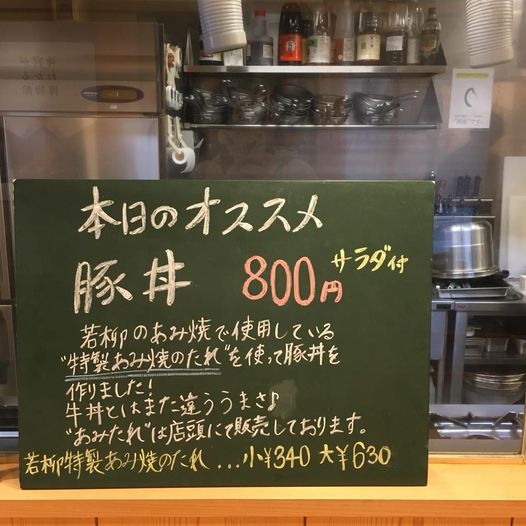 本日のオススメ
豚丼 800円 サラダ付
若柳のあみ焼で使用している
"特製あみ焼のたれ"を使って豚丼を
作りました!
牛丼とはまた違ううまさ♪
"あみたれ"は店頭にて販売しております。
若柳特製あみ焼のたれ...小¥340 大¥630